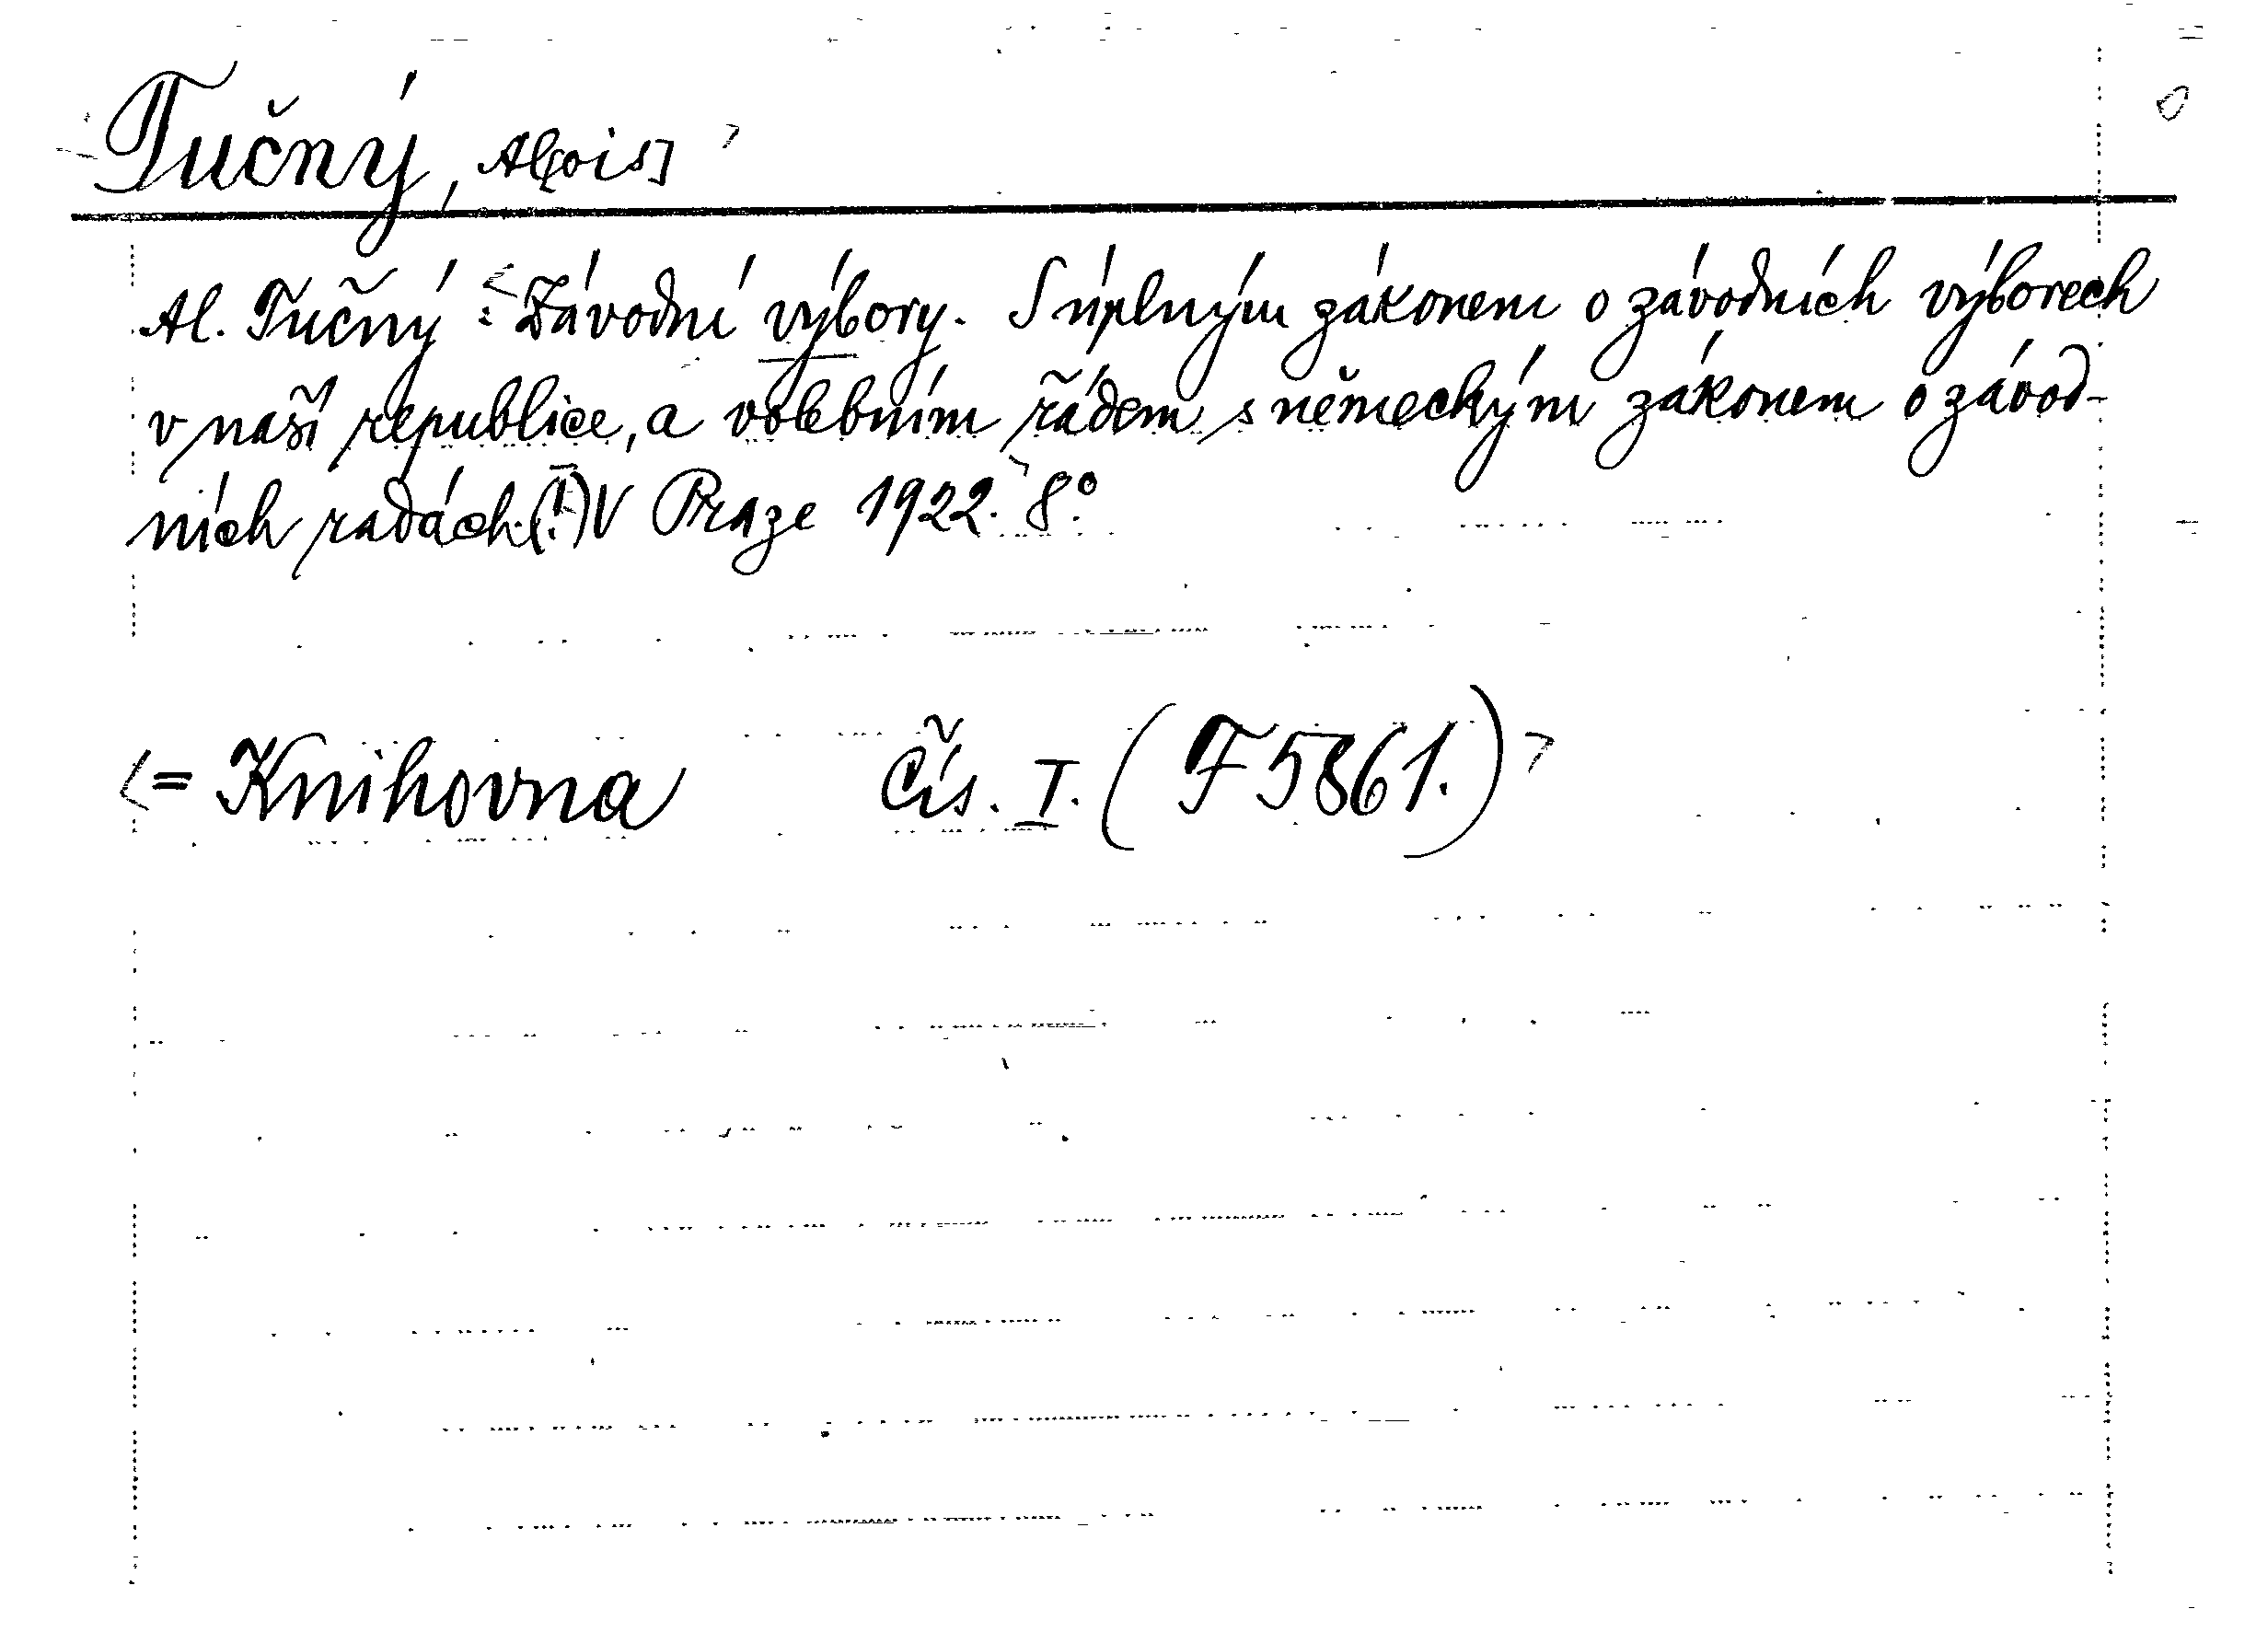 Tučný, Al[ois]
Al. Tučný: Závodní výbory. S úplným zákonem o závodních výborech
v naší republice, a volebním řádem s německým zákonem o závod-
ních radách. (I.) V Praze 1922. 8.°
= Knihovna Čís. I. (F 5861.)